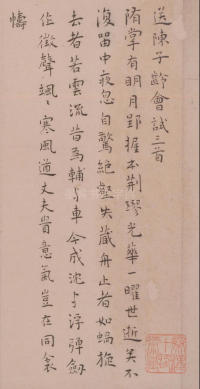 送陳子齡會試三首
隋掌有明月郢握本荆璆光華一曜世逝矣不
復留中夜忽自驚絕壑失藏舟止者如蝸
去者若雲流昔為輔與車今成沈與浮彈劒
作徵聲颯颯寒風遒丈夫貴意氣豈在同衾
幬